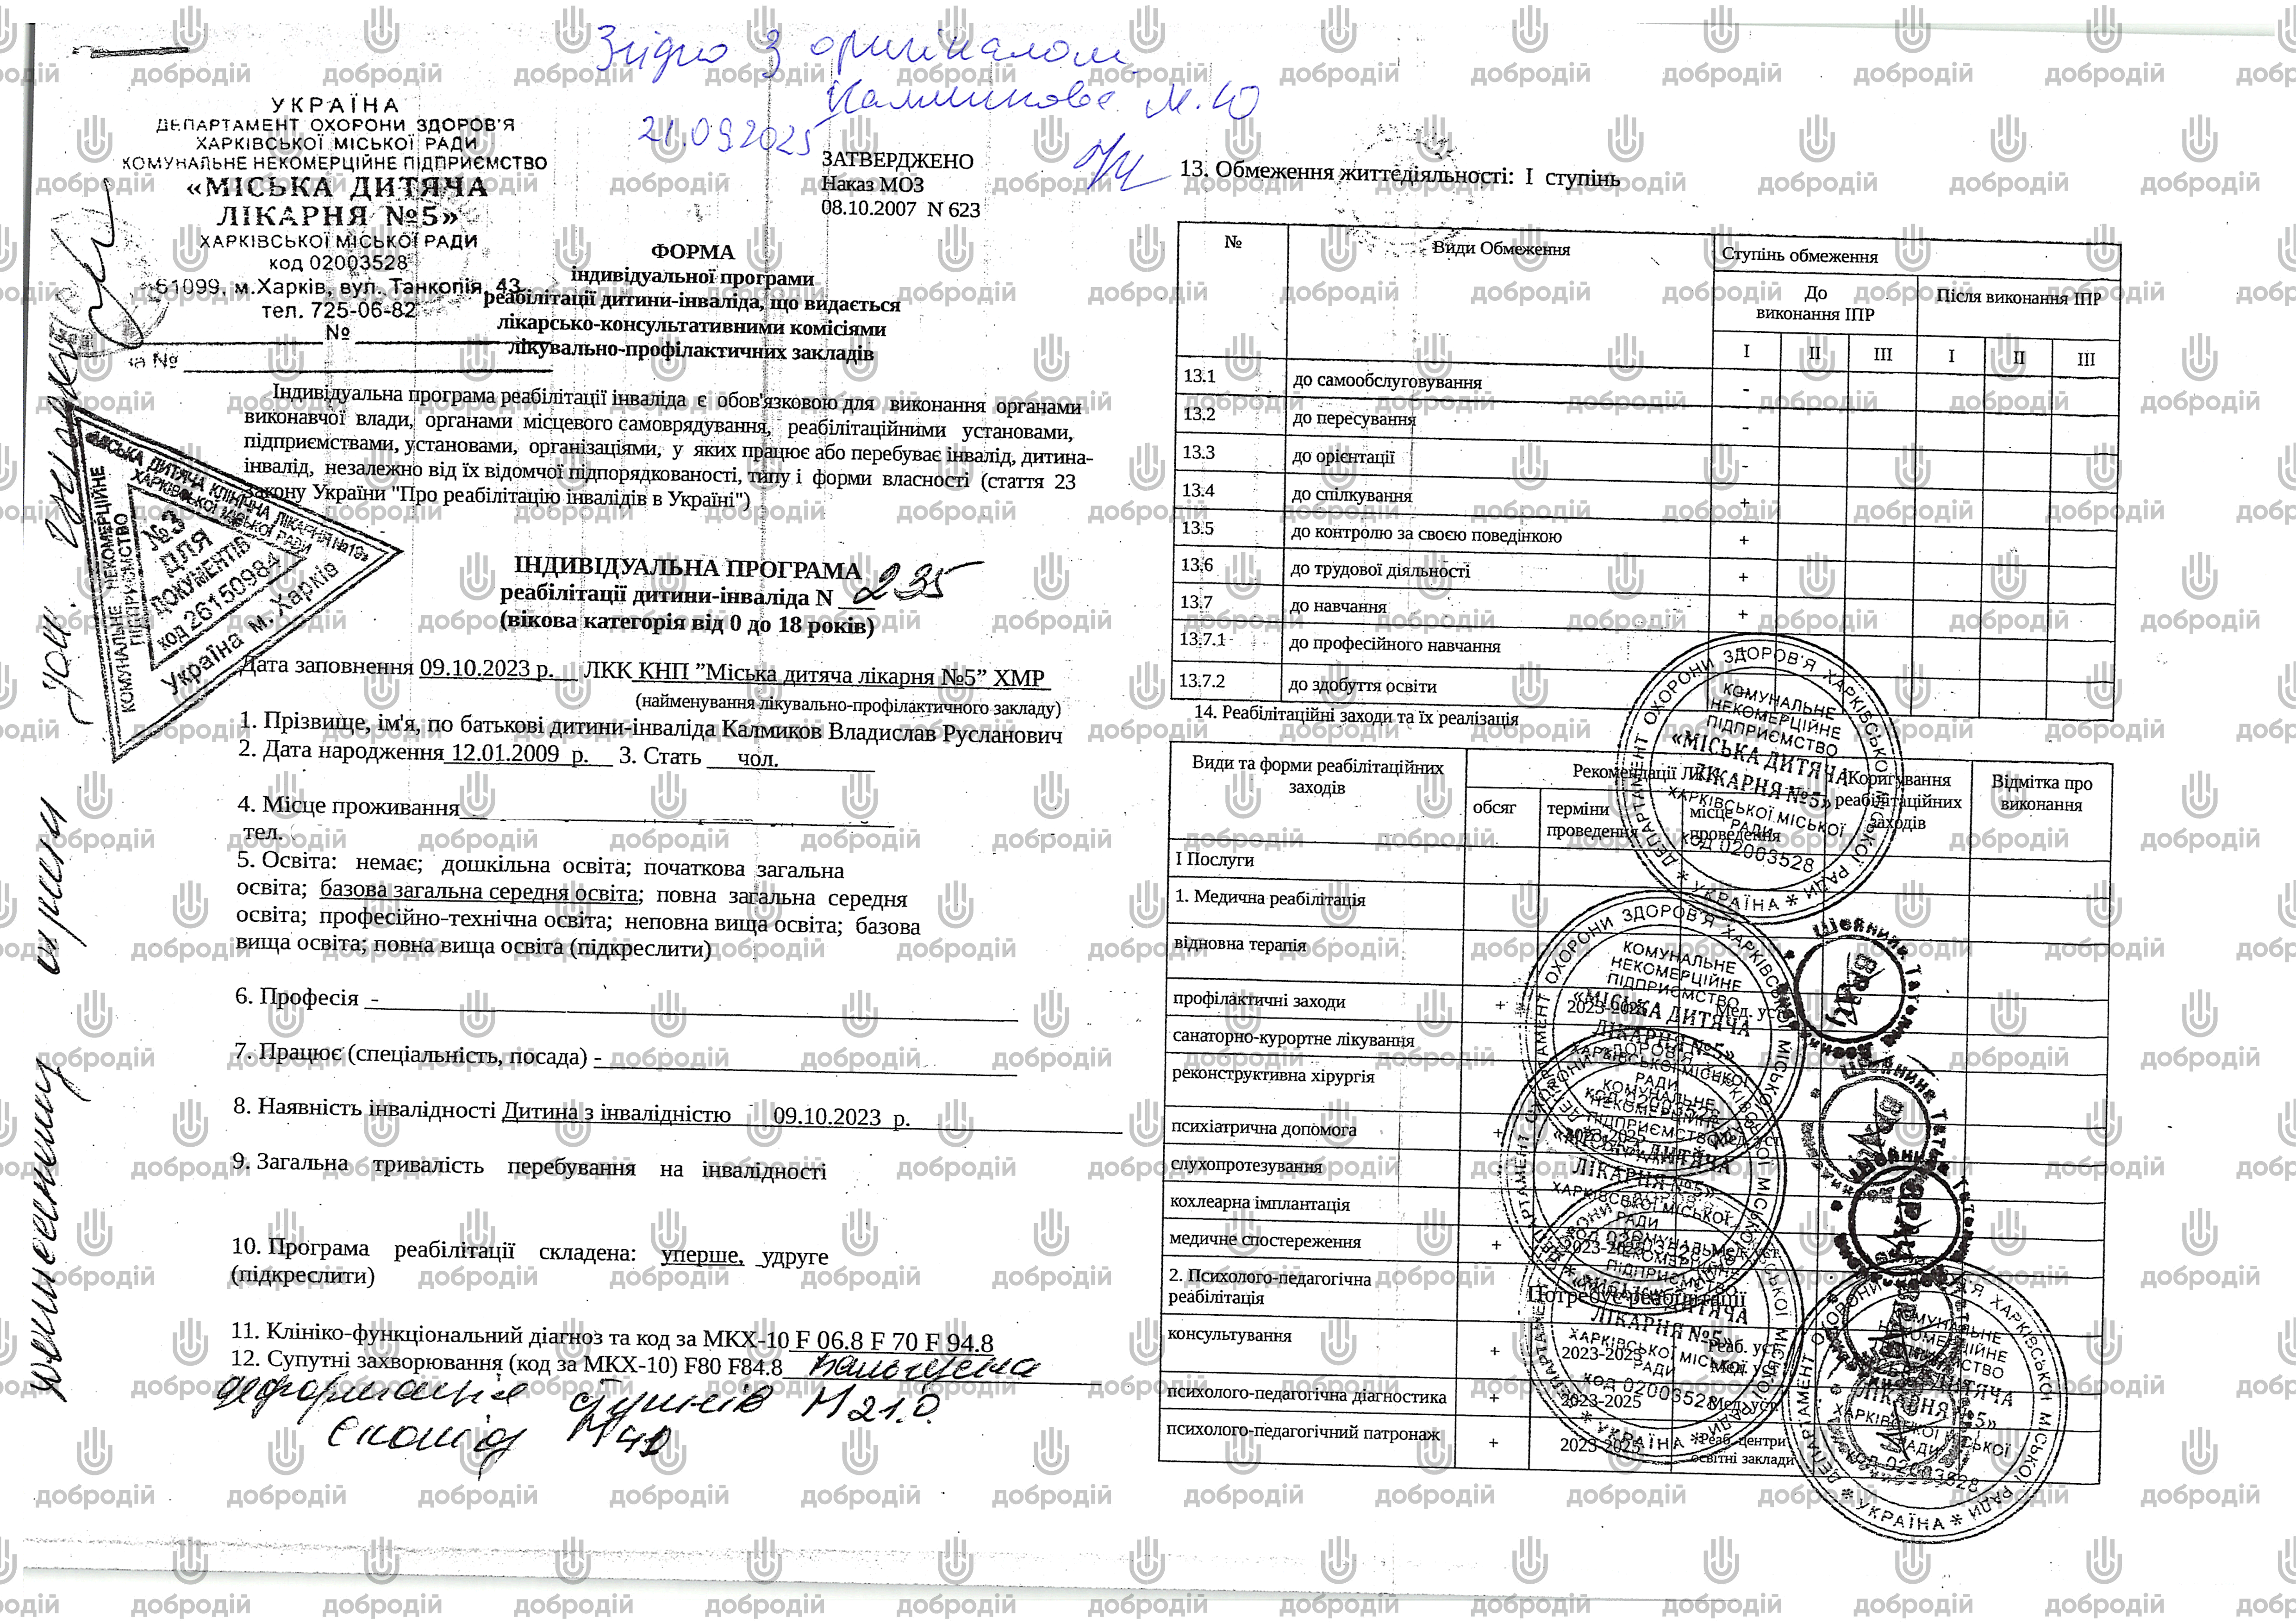 Згідно з оригіналом
Калмикова М.Ю
21.09.2025
УКРАЇНА
ДЕПАРТАМЕНТ ОХОРОНИ ЗДОРОВ'Я
ХАРКІВСЬКОЇ МІСЬКОЇ РАДИ
КОМУНАЛЬНЕ НЕКОМЕРЦІЙНЕ ПІДПРИЄМСТВО
«МІСЬКА ДИТЯЧА
ЛІКАРНЯ №5»
ХАРКІВСЬКОЇ МІСЬКОЇ РАДИ
код 02003528
61099, м.Харків, вул. Танкопія, 43
тел. 725-06-82
№
на №
ЗАТВЕРДЖЕНО
Наказ МОЗ
08.10.2007 N 623
ФОРМА
індивідуальної програми
реабілітації дитини-інваліда, що видається
лікарсько-консультативними комісіями
лікувально-профілактичних закладів
Індивідуальна програма реабілітації інваліда є обов'язковою для виконання органами
виконавчої влади, органами місцевого самоврядування, реабілітаційними установами,
підприємствами, установами, організаціями, у яких працює або перебуває інвалід, дитина-
інвалід, незалежно від їх відомчої підпорядкованості, типу і форми власності (стаття 23
Закону України "Про реабілітацію інвалідів в Україні")
КОМУНАЛЬНЕ НЕКОМЕРЦІЙНЕ ПІДПРИЄМСТВО
«МІСЬКА ДИТЯЧА КЛІНІЧНА ЛІКАРНЯ №19»
ХАРКІВСЬКОЇ МІСЬКОЇ РАДИ
№3
ДЛЯ
ДОКУМЕНТІВ
код 26150984
Україна м. Харків
ІНДИВІДУАЛЬНА ПРОГРАМА
реабілітації дитини-інваліда N 235
(вікова категорія від 0 до 18 років)
Дата заповнення 09.10.2023 р. ЛКК КНП ”Міська дитяча лікарня №5” ХМР
(найменування лікувально-профілактичного закладу)
1. Прізвище, ім'я, по батькові дитини-інваліда Калмиков Владислав Русланович
2. Дата народження 12.01.2009 р. 3. Стать чол.
4. Місце проживання
тел.
5. Освіта: немає; дошкільна освіта; початкова загальна
освіта; базова загальна середня освіта; повна загальна середня
освіта; професійно-технічна освіта; неповна вища освіта; базова
вища освіта; повна вища освіта (підкреслити)
6. Професія -
7. Працює (спеціальність, посада) -
8. Наявність інвалідності Дитина з інвалідністю 09.10.2023 р.
9. Загальна тривалість перебування на інвалідності
10. Програма реабілітації складена: уперше, удруге
(підкреслити)
11. Клініко-функціональний діагноз та код за МКХ-10 F 06.8 F 70 F 94.8
12. Супутні захворювання (код за МКХ-10) F80 F84.8 Вальгусна
деформація M21.0
13. Обмеження життєдіяльності: I ступінь
№ Види Обмеження Ступінь обмеження
До виконання ІПР Після виконання ІПР
I II III I II III
13.1 до самообслуговування -
13.2 до пересування -
13.3 до орієнтації -
13.4 до спілкування +
13.5 до контролю за своєю поведінкою +
13.6 до трудової діяльності +
13.7 до навчання +
13.7.1 до професійного навчання
13.7.2 до здобуття освіти
14. Реабілітаційні заходи та їх реалізація
Види та форми реабілітаційних заходів Рекомендації ЛКК Коригування реабілітаційних заходів Відмітка про виконання
обсяг терміни проведення місце проведення
I Послуги
1. Медична реабілітація
відновна терапія
профілактичні заходи + 2023-2025 Мед. уст
санаторно-курортне лікування
реконструктивна хірургія
психіатрична допомога + 2023-2025 Мед. уст
слухопротезування
кохлеарна імплантація
медичне спостереження + 2023-2025 Мед. уст
2. Психолого-педагогічна реабілітація Потребує реабілітації
консультування + 2023-2025 Реаб. уст Мед. уст
психолого-педагогічна діагностика + 2023-2025 Мед. уст
психолого-педагогічний патронаж + 2023-2025 Реаб. центри освітні заклади
ДЕПАРТАМЕНТ ОХОРОНИ ЗДОРОВ'Я ХАРКІВСЬКОЇ МІСЬКОЇ РАДИ * УКРАЇНА *
КОМУНАЛЬНЕ
НЕКОМЕРЦІЙНЕ
ПІДПРИЄМСТВО
«МІСЬКА ДИТЯЧА
ЛІКАРНЯ №5»
ХАРКІВСЬКОЇ МІСЬКОЇ
РАДИ
КОД 02003528
ВРАЧ
добродій